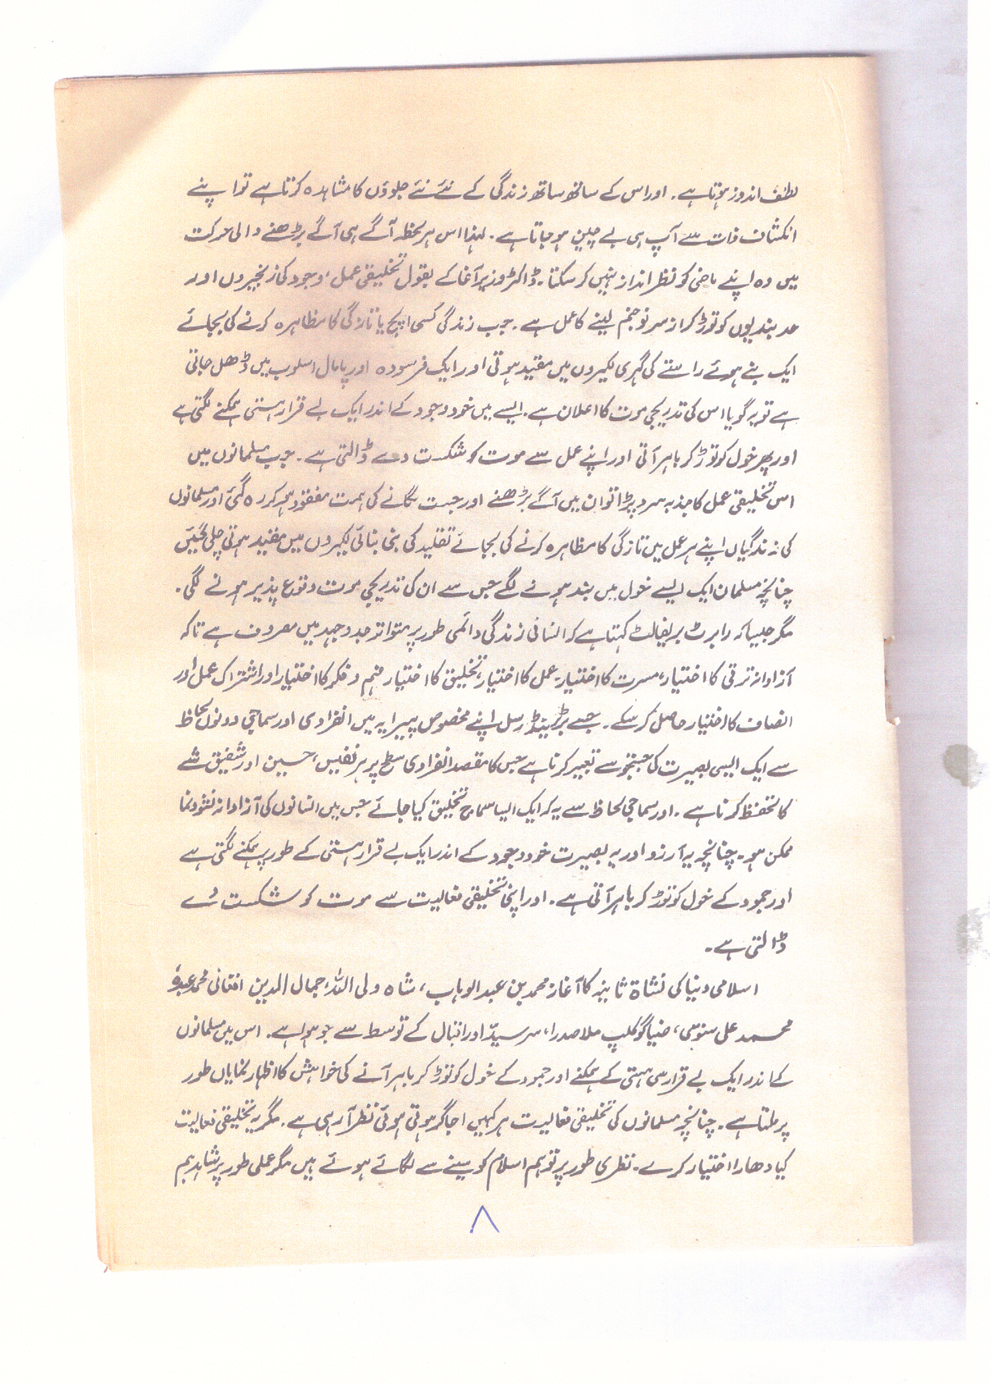 لطف اندوز ہوتا ہے۔ اور اس کے ساتھ ساتھ زندگی کے نئے نئے جلوؤں کا مشاہدہ کرتا ہے تو اپنے
انکشاف ذات سے آپ ہی بے چین ہو جاتا ہے۔ لہذا اس ہر لحظہ آگے ہی آگے بڑھنے والی حرکت
میں وہ اپنے ماضی کو نظر انداز نہیں کر سکتا۔ ڈاکٹر وزیر آغا کے بقول تخلیقی عمل، وجود کی زنجیروں اور
حد بندیوں کو توڑ کر از سر نو جنم لینے کا عمل ہے۔ جب زندگی کسی اپچ یا تازگی کا مظاہرہ کرنے کی بجائے
ایک بنے ہوئے راستے کی گہری لکیروں میں مقید ہوتی اور ایک فرسودہ اور پامال اسلوب میں ڈھل جاتی
ہے تو یہ گویا اس کی تدریجی موت کا اعلان ہے۔ ایسے میں خود وجود کے اندر ایک بے قرار ہستی ہمکنے لگتی ہے
اور پھر خول کو توڑ کر باہر آتی اور اپنے عمل سے موت کو شکست دے ڈالتی ہے۔ جب مسلمانوں میں
اس تخلیقی عمل کا جذبہ سرد پڑا تو ان میں آگے بڑھنے اور جست لگانے کی ہمت مفقود ہو کر رہ گئی اور مسلمانوں
کی زندگیاں اپنے ہر عمل میں تازگی کا مظاہرہ کرنے کی بجائے تقلید کی بنی بنائی لکیروں میں مقید ہوتی چلی گئیں
چنانچہ مسلمان ایک ایسے خول میں بند ہونے لگے جس سے ان کی تدریجی موت وقوع پذیر ہونے لگی۔
مگر جیسا کہ رابرٹ بریفالٹ کہتا ہے کہ انسانی زندگی دائمی طور پر متواتر جدوجہد میں مصروف ہے تاکہ
آزادانہ ترقی کا اختیار، مسرت کا اختیار۔ عمل کا اختیار، تخلیق کا اختیار فہم و فکر کا اختیار اور اشتراک عمل اور
انصاف کا اختیار حاصل کر سکے۔ جسے برٹرینڈ رسل اپنے مخصوص پیرایہ میں انفرادی اور سماجی دونوں لحاظ
سے ایک ایسی بصیرت کی جستجو سے تعبیر کرتا ہے جس کا مقصد انفرادی سطح پر ہر نفیس، حسین اور شفیق شے
کا تحفظ کرنا ہے۔ اور سماجی لحاظ سے یہ کہ ایک ایسا سماج تخلیق کیا جائے جس میں انسانوں کی آزادانہ نشوونما
ممکن ہو۔ چنانچہ یہ آرزو اور یہ بصیرت خود وجود کے اندر ایک بے قرار ہستی کے طور پر ہمکنے لگتی ہے
اور جمود کے خول کو توڑ کر باہر آتی ہے۔ اور اپنی تخلیقی فعالیت سے موت کو شکست دے
ڈالتی ہے۔
اسلامی دنیا کی نشاۃ ثانیہ کا آغاز محمد بن عبد الوہاب، شاہ ولی اللہ، جمال الدین افغانی محمد عبدہٗ
محمد علی سنوسی، ضیا گوکلپ ملا صدرا، سر سید اور اقبال کے توسط سے جو ہوا ہے۔ اس میں مسلمانوں
کے اندر ایک بے قرار سی ہستی کے ہمکنے اور جمود کے خول کو توڑ کر باہر آنے کی خواہش کا اظہار نمایاں طور
پر ملتا ہے۔ چنانچہ مسلمانوں کی تخلیقی فعالیت ہر کہیں اجاگر ہوتی ہوئی نظر آ رہی ہے۔ مگر یہ تخلیقی فعالیت
کیا دھارا اختیار کرے۔ نظری طور پر تو ہم اسلام کو سینے سے لگائے ہوئے ہیں مگر عملی طور پر شاید ہم
۸